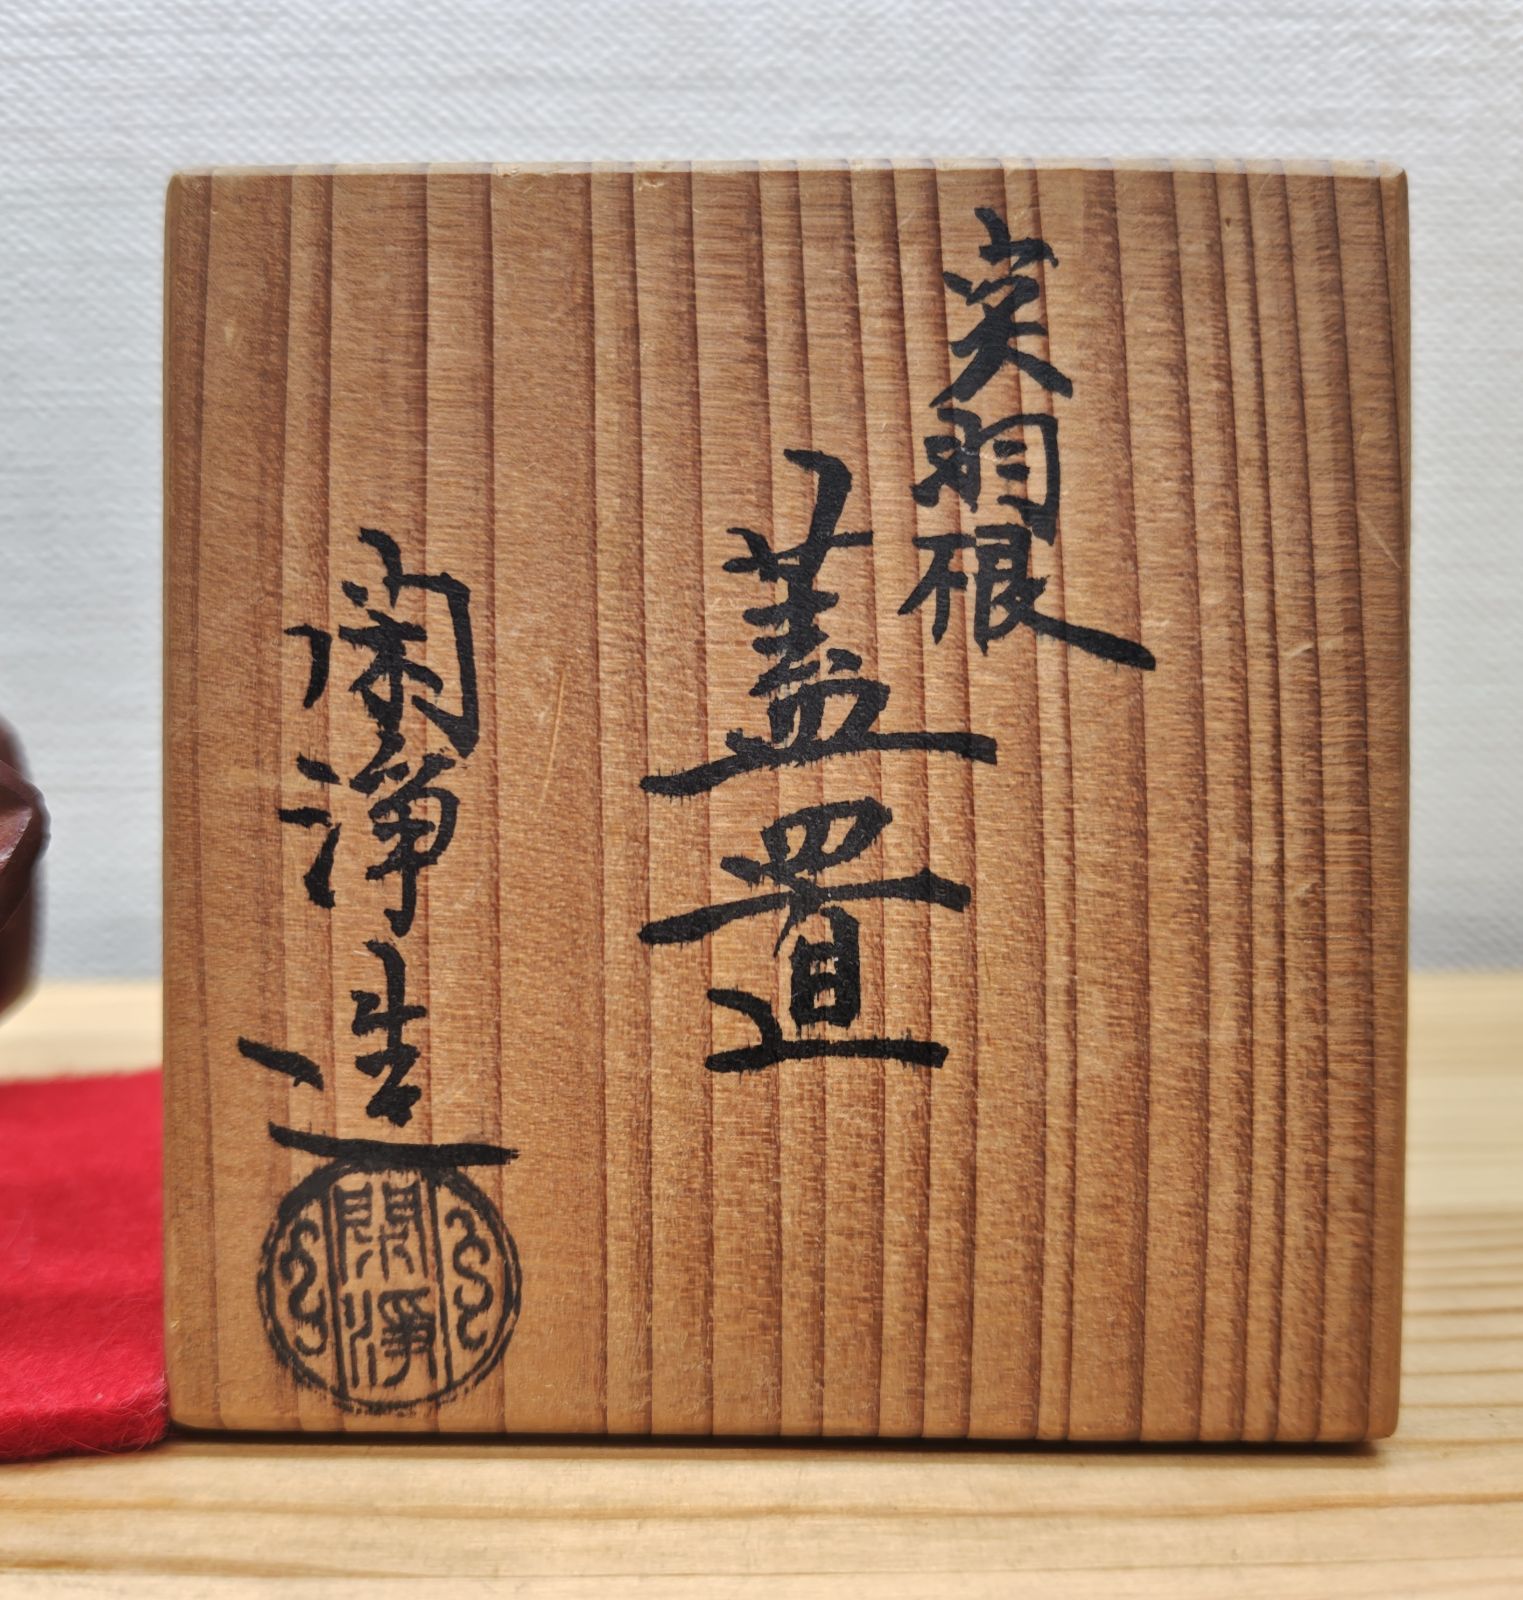 突羽根
蓋置
閑浄造
閑浄